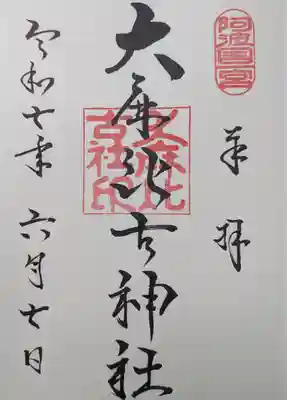 阿波國一宮
奉拝
大麻比古神社
大麻比
古社印
令和七年六月七日